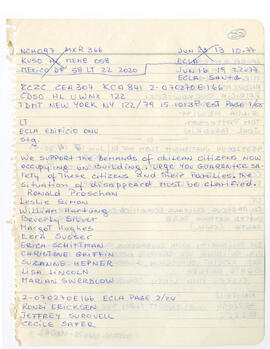 NCH097 MXR366 JUN 13 10.77
KVSO HL MEHE 058 ECLA
MEXICO DF 58 LT 22 2020 JUN 16 19 22077
ECLA SANTG
RCZC CEA307 KCA841 2-070270E166
CDSO HL UWNX 122
TDMT NEW YORK NY 122/79 15 1013P EST PAGE 1/50
LT
ECLA EDIFICIO ONU
Stg.
WE SUPPORT THE DEMANDS OF CHILEAN CITIZENS NOW
OCCUPYING UN BUILDING. URGE YOU GUARANTEE SA
FETY OF THESE CITIZENS AND THEIR FAMILIES. THE
SITUATION OF DISAPPEARED MUST BE CLARIFIED.
RONALD PROSCHAN
LESLIE SIMON
WILLIAM HARTUNG
BEVERLY SILVER
MARGET HUGHES
EZRA SUSSER
ERICA SCHIFTMAN
CHRISTINE GRIFFIN
SUZANNE HEPNER
LISA LINCOLN
MARIAN SWERDLOW
2-070270E166 ECLA PAGE 2/24
RONA ERICKSEN
JEFFREY SUROVELL
CECILE SAFER